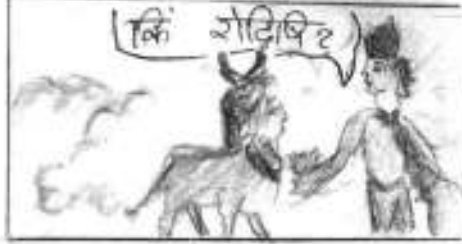 किं रोदिषि?